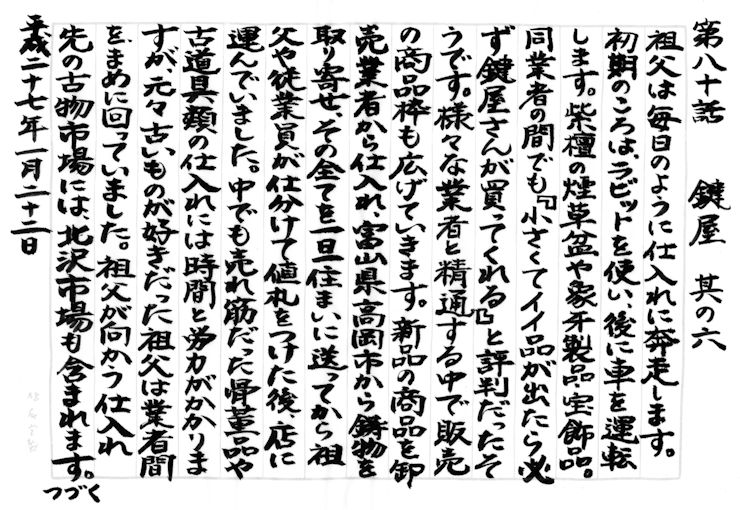 第八十話　鍵屋　其の六
祖父は毎日のように仕入れに奔走します。
初期のころは、ラビットを使い、後に車を運転
します。紫檀の煙草盆や象牙製品、宝飾品。
同業者の間でも『小さくてイイ品が出たら必
ず鍵屋さんが買ってくれる』と評判だったそ
うです。様々な業者と精通する中で販売
の商品枠も広げていきます。新品の商品を卸
売業者から仕入れ、富山県高岡市から鋳物を
取り寄せ、その全てを一旦住まいに送ってから祖
父や従業員が仕分けて値札をつけた後、店に
運んでいました。中でも売れ筋だった骨董品や
古道具類の仕入れには時間と労力がかかりま
すが、元々古いものが好きだった祖父は業者間
を、まめに回っていました。祖父が向かう仕入れ
先の古物市場には、北沢市場も含まれます。
つづく
平成二十七年一月二十二日